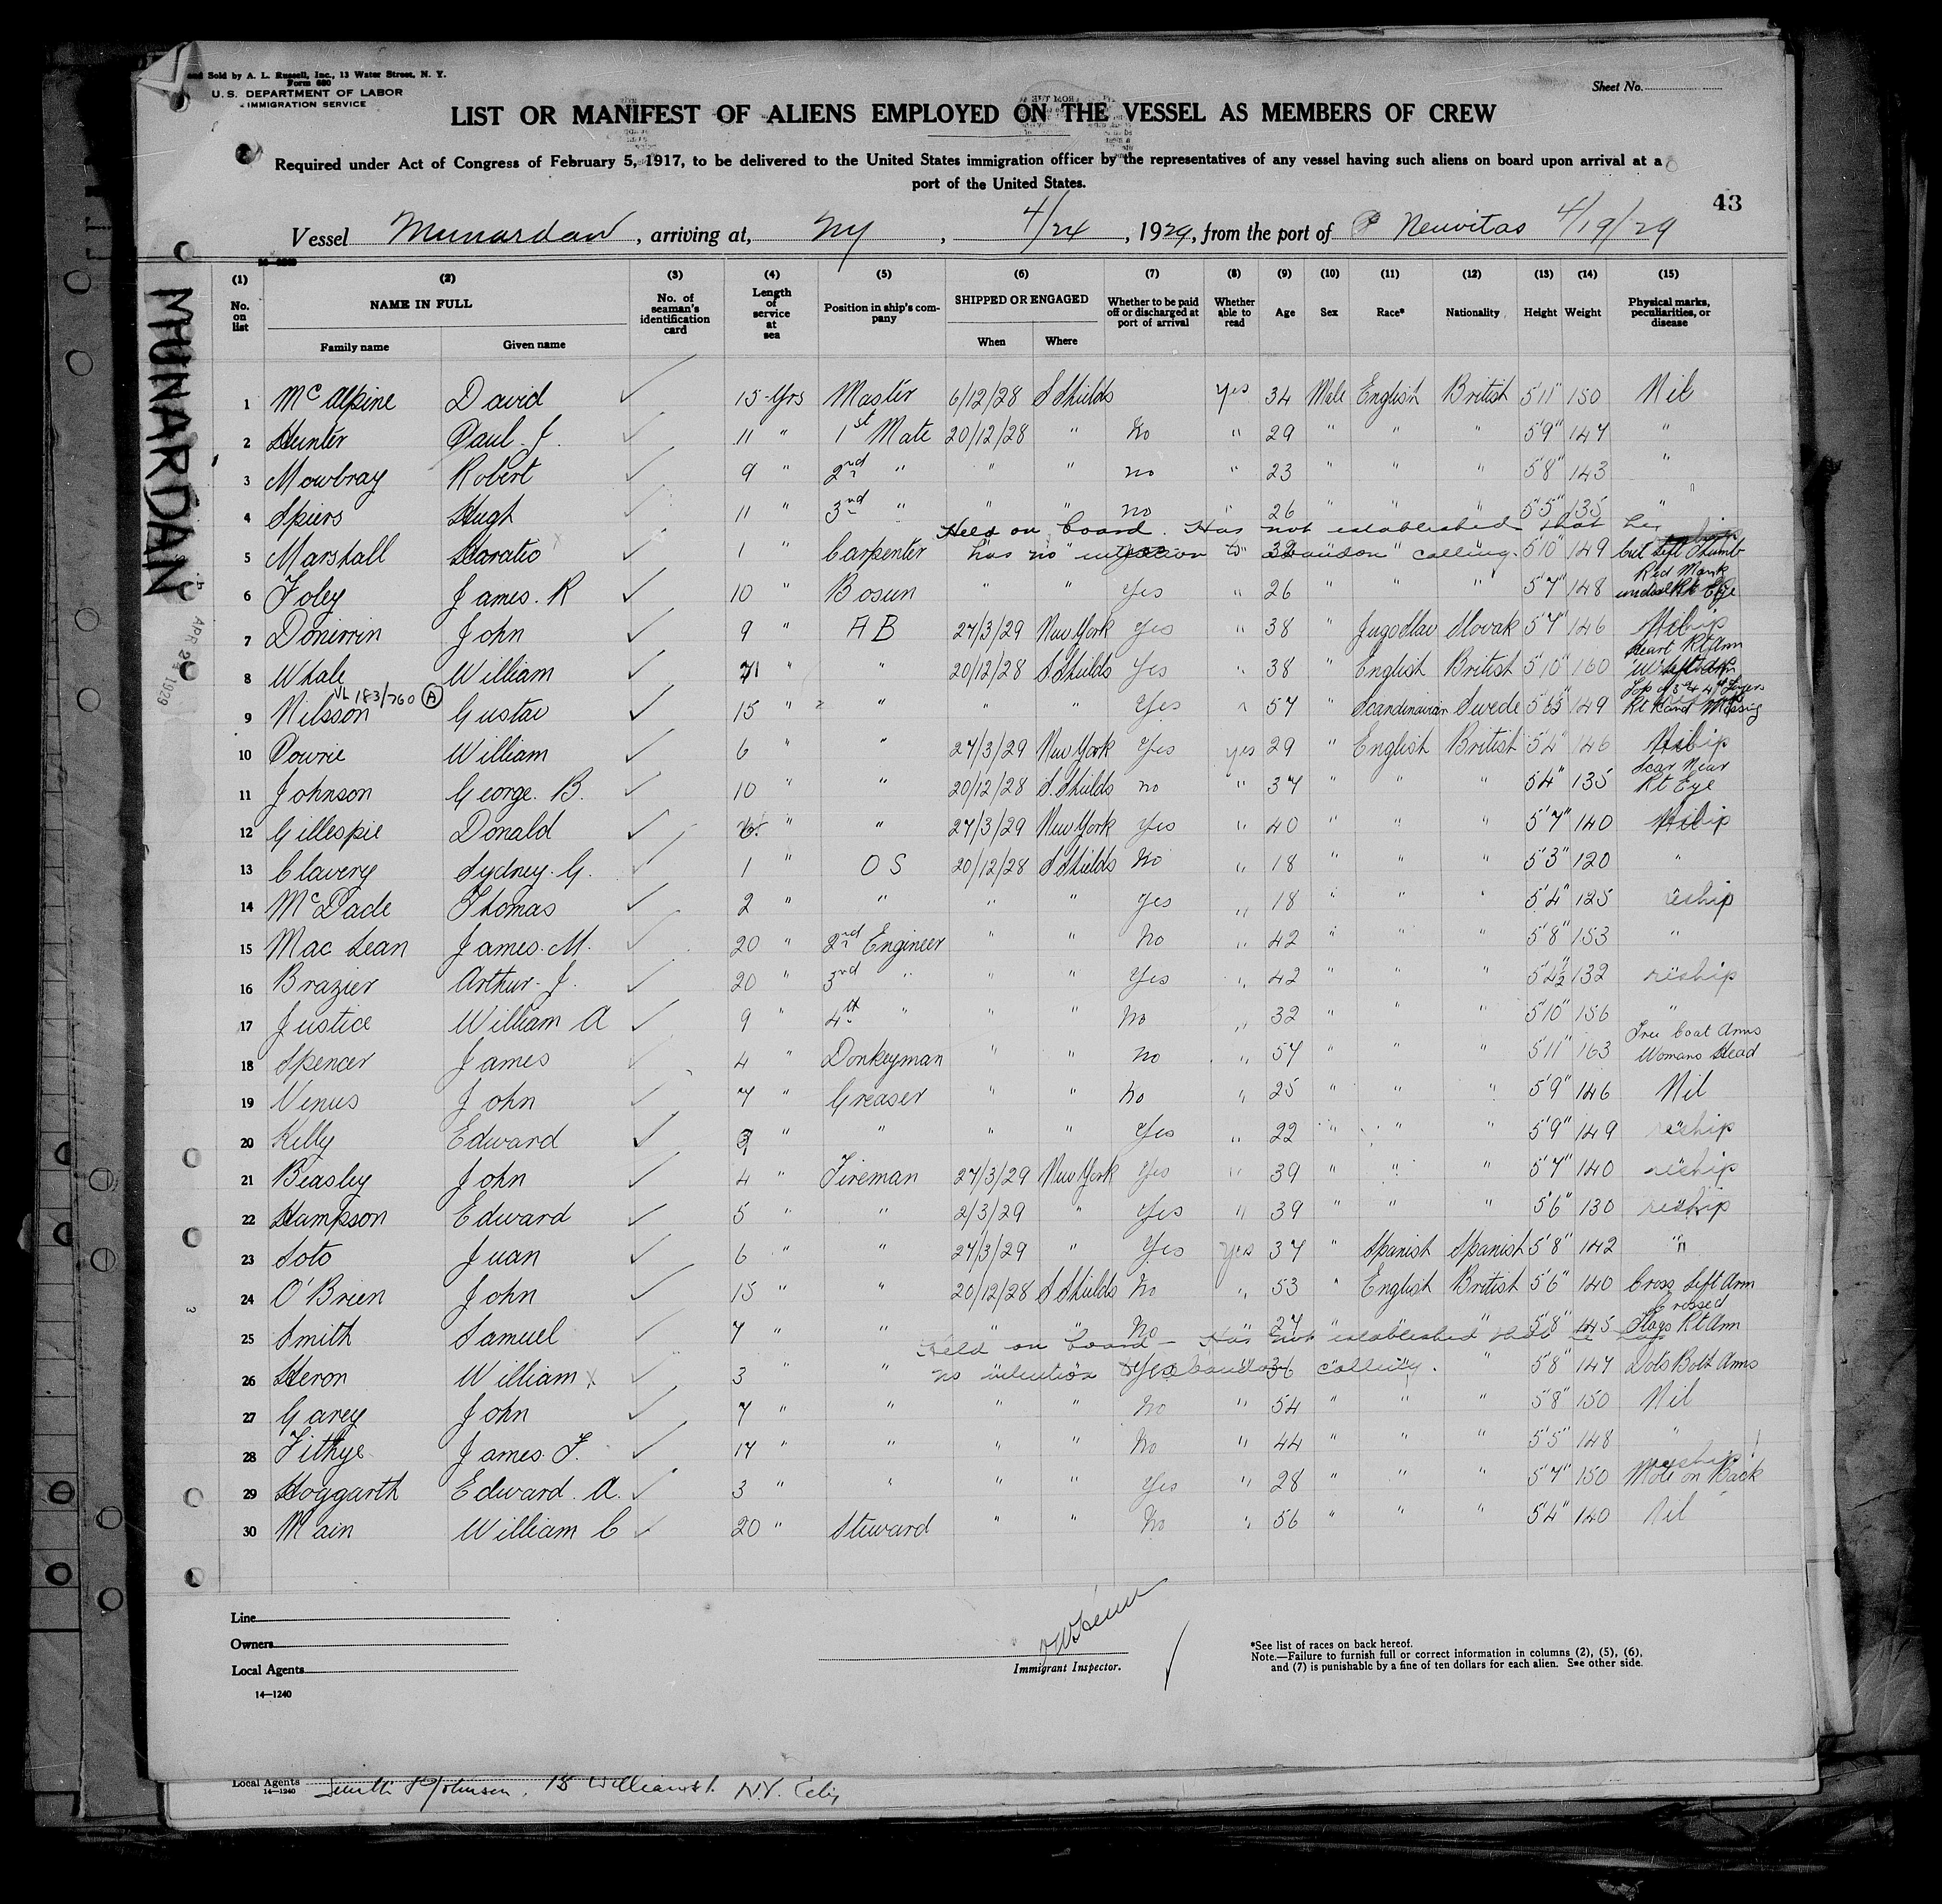 and Sold by A. L. Russell, Inc., 13 Water Street, N. Y.
Form 680
U. S. DEPARTMENT OF LABOR
IMMIGRATION SERVICE
Sheet No.
LIST OR MANIFEST OF ALIENS EMPLOYED ON THE VESSEL AS MEMBERS OF CREW
Required under Act of Congress of February 5, 1917, to be delivered to the United States immigration officer by the representatives of any vessel having such aliens on board upon arrival at a
port of the United States.
43
Vessel Munardan, arriving at, NY, 4/24, 1929, from the port of P Neuvitas 4/19/29
MUNARDAN
APR 24 1929
(1) (2) (3) (4) (5) (6) (7) (8) (9) (10) (11) (12) (13) (14) (15)
No. on list NAME IN FULL Family name Given name No. of seaman's identification card Length of service at sea Position in ship's company SHIPPED OR ENGAGED When Where Whether to be paid off or discharged at port of arrival Whether able to read Age Sex Race* Nationality Height Weight Physical marks, peculiarities, or disease
1 McAlpine David ✓ 15 Yrs Master 6/12/28 S Shields Yes 34 Male English British 5'11" 150 Nil
2 Hunter Paul. J. ✓ 11 " 1st Mate 20/12/28 " No " 29 " " " 5'9" 147 "
3 Mowbray Robert ✓ 9 " 2nd " " " no " 23 " " " 5'8" 143 "
4 Spiers Hugh ✓ 11 " 3nd " " " no " 26 " " " 5'5" 135 "
Held on board. Has not established that he
has no intention to abandon calling.
5 Marshall Horatio ✓ 1 " Carpenter 32 5'10" 149 Cut Left Thumb
6 Foley James. R ✓ 10 " Bosun " " Yes " 26 " " " 5'7" 148 Red Mark under Rt Eye
7 Donirrin John ✓ 9 " A B 27/3/29 New York Yes " 38 " Jugoslav Slovak 5'7" 146
8 Whale William ✓ " " 20/12/28 S. Shields Yes " 38 " English British 5'10" 160 Heart Rt Arm
VL 183/760 (A)
9 Nilsson Gustav ✓ 15 " " " " Yes " 57 " Scandinavian Swede 149 Top of 3rd & 4th Fingers Rt Hand Missing
10 Dowrie William ✓ 6 " " 27/3/29 New York Yes yes 29 " English British 5'4" 146
11 Johnson George. B. ✓ 10 " " 20/12/28 S. Shields no " 37 " " " 5'4" 135 Scar Near Rt Eye
12 Gillespie Donald ✓ 6 " " 27/3/29 New York Yes " 40 " " " 5'7" 140
13 Clavery Sydney. G. ✓ 1 " O S 20/12/28 S Shields No " 18 " " " 5'3" 120 "
14 McDade Thomas ✓ 2 " " " " Yes " 18 " " " 5'4" 125 reship
15 Mac Lean James. M. ✓ 20 " 2nd Engineer " " No " 42 " " " 5'8" 153 "
16 Brazier Arthur. J. ✓ 20 " 3nd " " " Yes " 42 " " " 5'4½" 132 reship
17 Justice William A ✓ 9 " 4th " " " No " 32 " " " 5'10" 156 "
18 Spencer James ✓ 4 " Donkeyman " " No " 57 " " " 5'11" 163 Tree Coat Arms Womans Head
19 Venus John ✓ 7 " Greaser " " No " 25 " " " 5'9" 146 Nil
20 Kelly Edward ✓ 3 " " " " Yes " 22 " " " 5'9" 149 reship
21 Beasley John ✓ 4 " Fireman 27/3/29 New York Yes " 39 " " " 5'7" 140 reship
22 Hampson Edward ✓ 5 " " 2/3/29 " Yes " 39 " " " 5'6" 130 reship
23 Soto Juan ✓ 6 " " 27/3/29 " Yes Yes 37 " Spanish Spanish 5'8" 142 "
24 O'Brien John ✓ 15 " " 20/12/28 S Shields No " 53 " English British 5'6" 140 Cross Left Arm
25 Smith Samuel ✓ 7 " " " " No " 27 " " " 5'8" 145 Crossed Flags Rt Arm
Held on board - Has not established that he has
no intention to abandon calling.
26 Heron William ✓ 3 " " Yes 36 " 5'8" 147 Dots Both Arms
27 Garey John ✓ 7 " " " " No " 54 " " " 5'8" 150 Nil
28 Fithye James. F. ✓ 17 " " " " No " 44 " " " 5'5" 148 "
29 Hoggarth Edward. A. ✓ 3 " " " " Yes " 28 " " " 5'7" 150 reship Mole on Back
30 Main William C ✓ 20 " Steward " " No " 56 " " " 5'4" 140 Nil
Line
Owners
Local Agents
14—1240
Immigrant Inspector.
*See list of races on back hereof.
Note.—Failure to furnish full or correct information in columns (2), (5), (6),
and (7) is punishable by a fine of ten dollars for each alien. See other side.
Local Agents Smith & Johnson, 18 William St. N.Y. City
14—1240